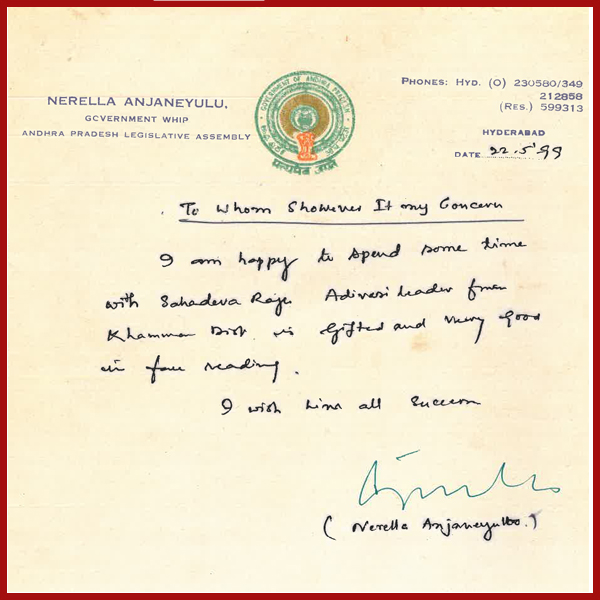 NERELLA ANJANEYULU,
GOVERNMENT WHIP
ANDHRA PRADESH LEGISLATIVE ASSEMBLY
GOVERNMENT OF ANDHRA PRADESH
सत्यमेव जयते
PHONES: HYD. (O) 230580/349
212858
(RES.) 599313
HYDERABAD
DATE 22.5.99
To Whom Showever It my Concern
I am happy to spend some time
with Sahadeva Raju Adivasi Leader from
Khammam Dist. is Gifted and very good
in face reading.
I wish him all Success
( Nerella Anjaneyulu. )